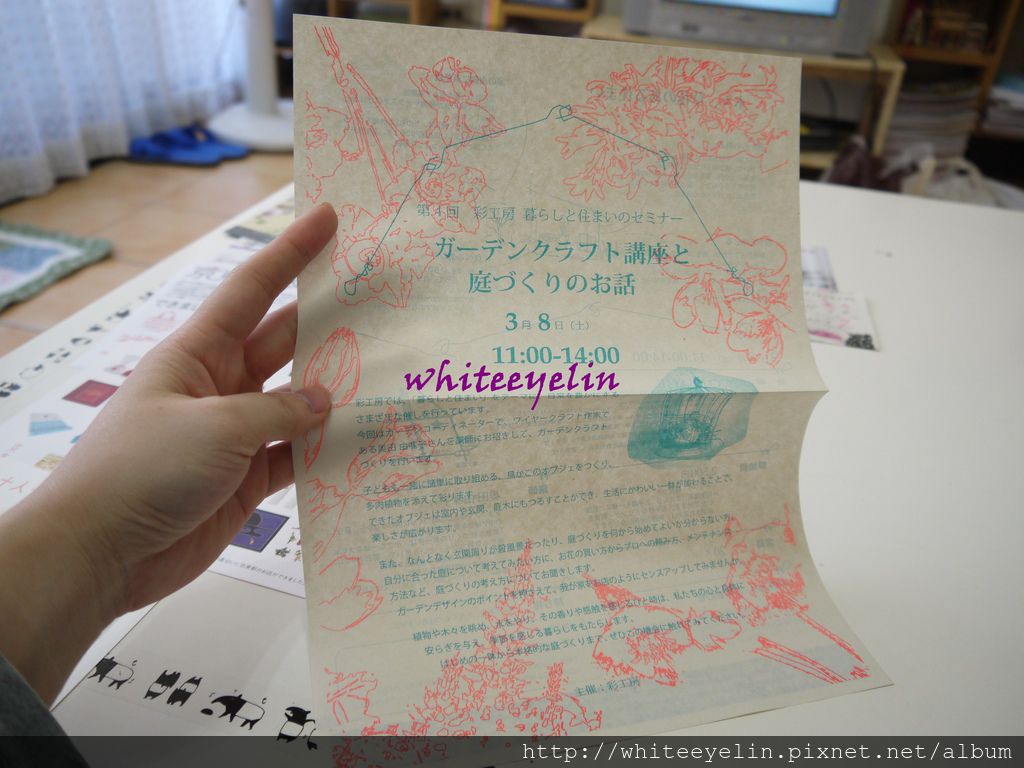 第4回 彩工房 暮らしと住まいのセミナー
ガーデンクラフト講座と
庭づくりのお話
3月8日（土）
11:00-14:00
whiteeyelin
彩工房では、「暮らしと住まい」をテーマに、日常を豊かにする
さまざまな催しを行っています。
今回はガーデンコーディネーターで、ワイヤークラフト作家で
ある黒田由雅子さんを講師にお招きして、ガーデンクラフト
づくりを行います。
子どもも一緒に簡単に取り組める、鳥かごのオブジェをつくり、
多肉植物を添えて彩ります。
できたオブジェは室内や玄関、庭木にもつるすことができ、生活にかわいい一昔が加わることで、
楽しさが広がります。
また、なんとなく玄関周りが殺風景だったり、庭づくりを何から始めてよいか分からない方、
自分に合った庭について考えてみたい方に、お花の買い方からプロへの頼み方、メンテナンス
方法など、庭づくりの考え方についてお聞きします。
ガーデンデザインのポイントを押さえて、我が家をお店のようにセンスアップしてみませんか。
植物や木々を眺め、水をやり、その香りや感触を感じるひと時は、私たちの心と身体に
安らぎを与え、季節を感じる暮らしをもたらします。
はじめの一鉢から本格的な庭づくりまで、ぜひこの機会に触れてみてください。
主催：彩工房
http://whiteeyelin.pixnet.net/album